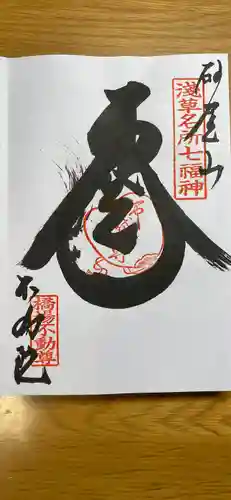 砂尾山
淺草名所七福神
寿
不動院
橋場不動尊